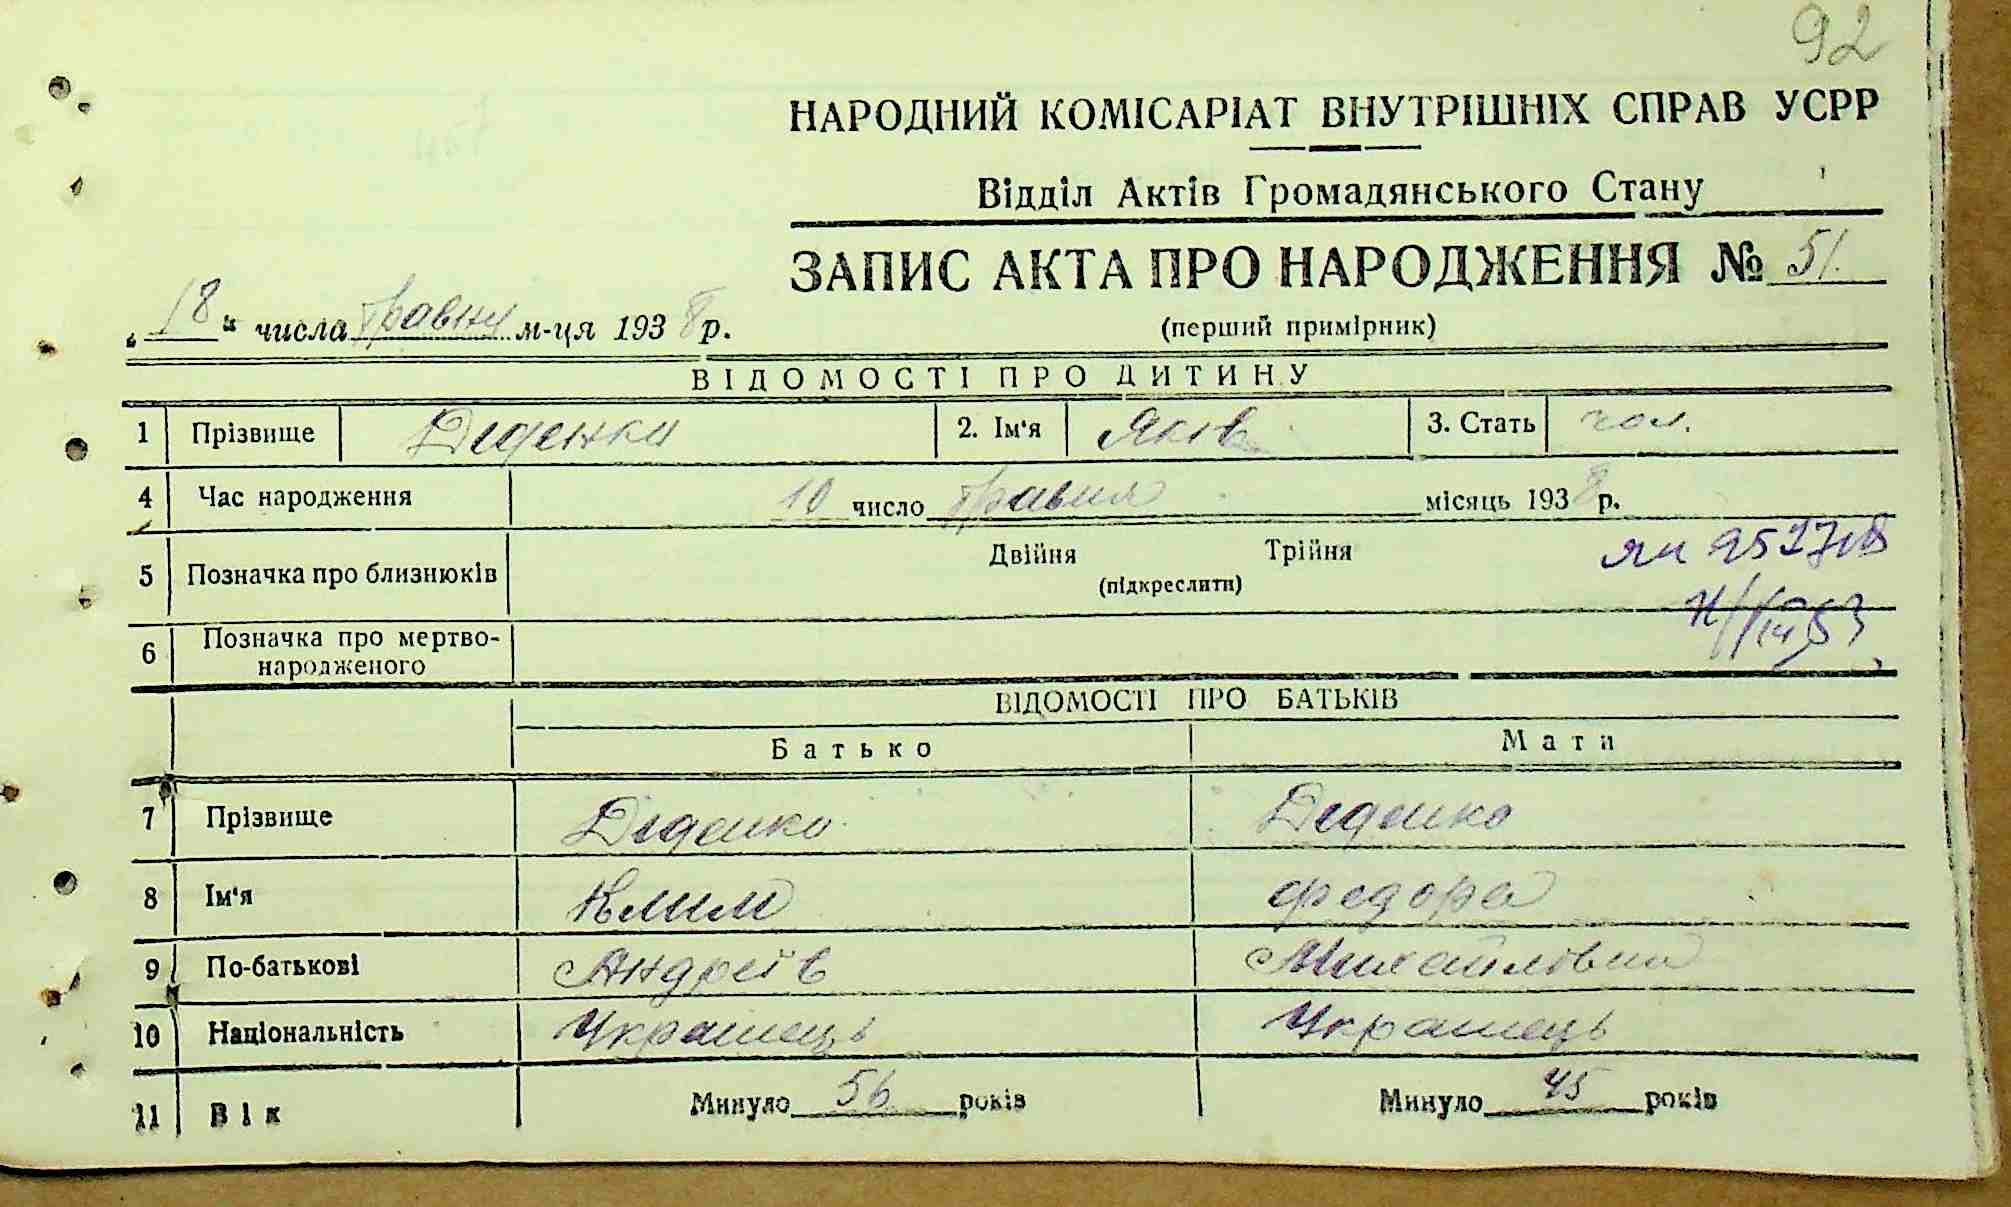 92
НАРОДНИЙ КОМІСАРІАТ ВНУТРІШНІХ СПРАВ УСРР
Відділ Актів Громадянського Стану
ЗАПИС АКТА ПРО НАРОДЖЕННЯ № 51.
„18“ числа травня м-ця 1938 р.
(перший примірник)
ВІДОМОСТІ ПРО ДИТИНУ
1 Прізвище Діденко 2. Ім'я Яків 3. Стать чол.
4 Час народження 10 число травня місяць 1938 р.
5 Позначка про близнюків Двійня Трійня
(підкреслити)
6 Позначка про мертво-
народженого
ВІДОМОСТІ ПРО БАТЬКІВ
Батько Мати
7 Прізвище Діденко Діденко
8 Ім'я Клим Федора
9 По-батькові Андреїв Михайлівна
10 Національність Українець Українець
11 Вік Минуло 56 років Минуло 45 років